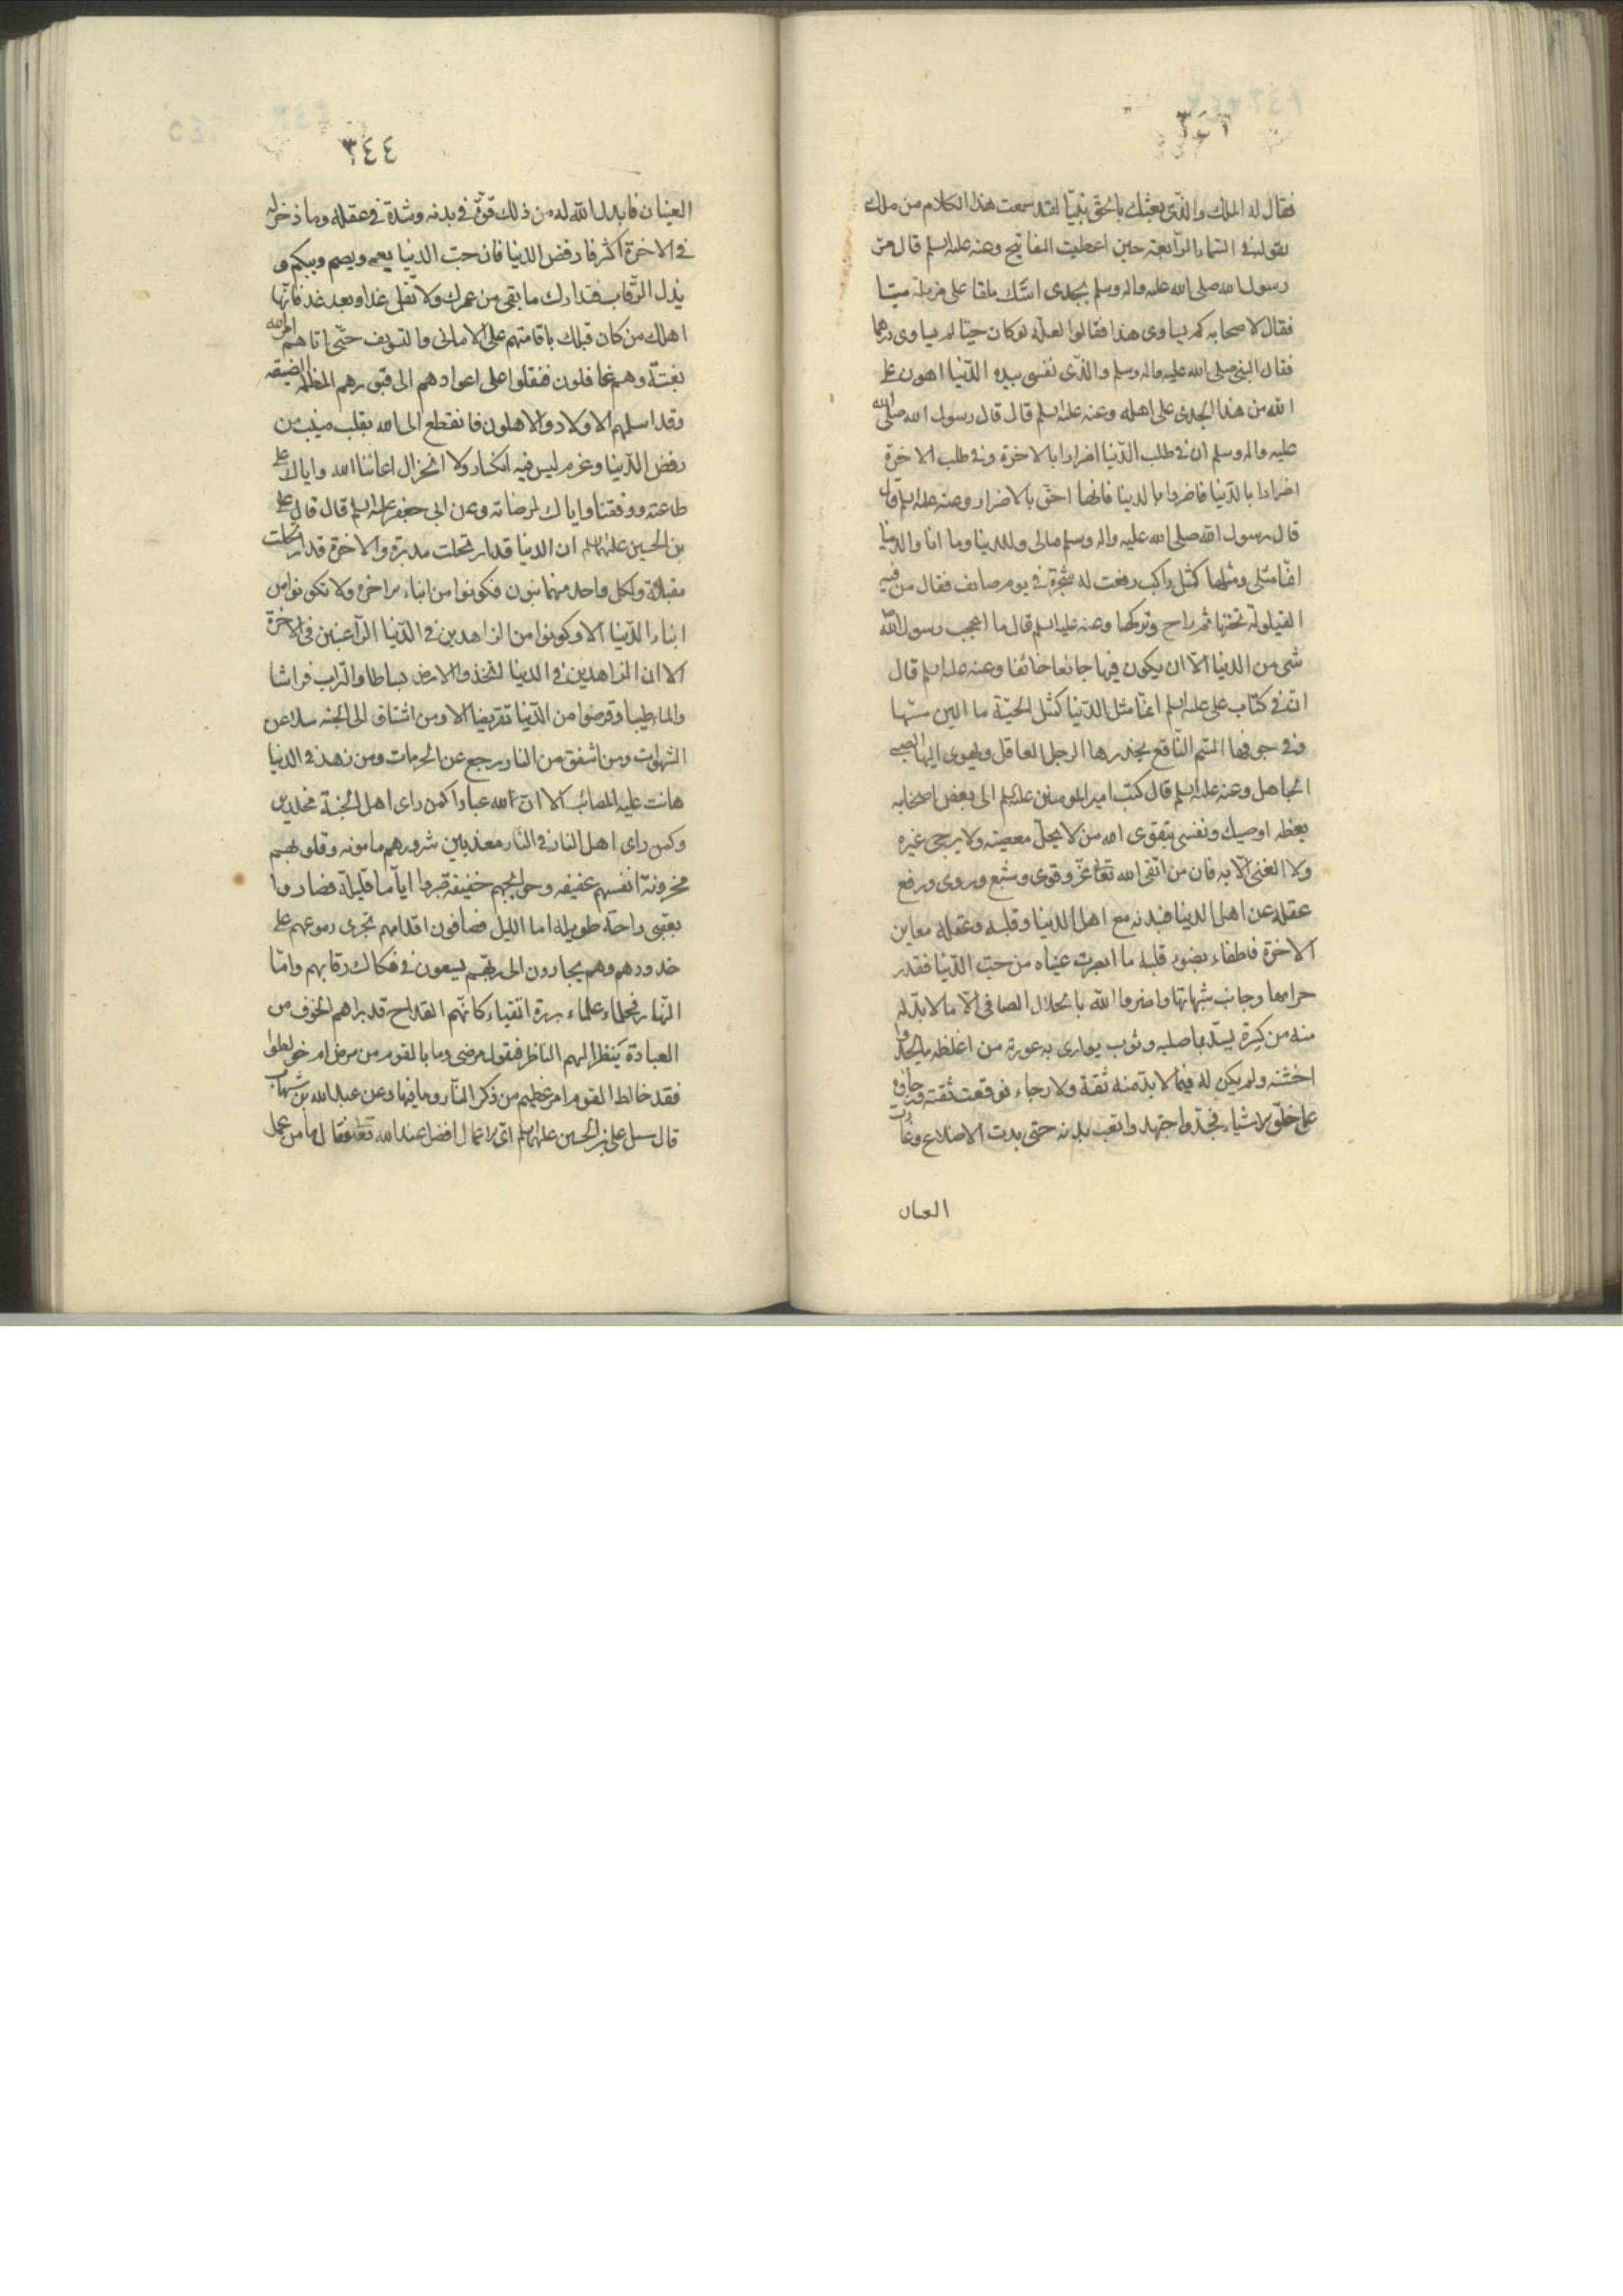 فقال له الملك والذي بعثك بالحق نبيا لقد سمعت هذا الكلام من ملك
يقوله في السماء الرابعة حين اعطيت المفاتيح وعنه عليه السلم قال مر
رسول الله صلى الله عليه واله وسلم بجدى اسك ملقا على مزبلة ميتا
فقال لاصحابه كم يساوى هذا فقالوا لعله لو كان حيا لم يساوى درهما
فقال النبي صلى الله عليه واله وسلم والذي نفسي بيده الدنيا اهون على
الله من هذا الجدى على اهله وعنه عليه السلم قال قال رسول الله صلى الله
عليه واله وسلم ان في طلب الدنيا اضرارا بالاخرة وفي طلب الاخرة
اضرارا بالدنيا فاضروا بالدنيا فانها احق بالاضرار وعنه عليه السلم قال
قال رسول الله صلى الله عليه واله وسلم مالى وللدنيا وما انا والدنيا
انما مثلى ومثلها كمثل راكب رفعت له شجرة في يوم صايف فقال من فيه
القيلولة تحتها ثم راح وتركها وعنه عليه السلم قال ما اعجب رسول الله
شى من الدنيا الا ان يكون فيها جائعا خائفا وعنه عليه السلم قال
ان في كتاب على عليه السلم انما مثل الدنيا كمثل الحية ما الين مسها
وفي جوفها السم الناقع يحذرها الرجل العاقل ويهوى اليها الصبى
الجاهل وعنه عليه السلم قال كتب امير المومنين عليه السلم الى بعض اصحابه
يعظه اوصيك ونفسى بتقوى الله من لا يحل معصيته ولا يرجى غيره
ولا الغنى الا به فان من اتقى الله تعالى عز وقوى وشبع وروى ورفع
عقله عن اهل الدنيا فبدنه مع اهل الدنيا وقلبه وعقله معاين
الاخرة فاطفاء بضوء قلبه ما ابصرت عيناه من حب الدنيا فقذر
حرامها وجانب شبهاتها واضر والله بالحلال الصافى الا مالا بد له
منه من كسرة يشد بها صلبه وثوب يوارى به عورته من اغلظ ما يجد و
اخشنه ولم يكن له فيما لا بد منه ثقة ولا رجاء فوقعت ثقته ورجاؤه
على خالق الاشياء فجد واجتهد واتعب بدنه حتى بدت الاضلاع وغارت
العينان
٣٤٤
العينان فابدل الله له من ذلك قوة في بدنه وشدة في عقله وما ذخر له
في الاخرة اكثر فارفض الدنيا فان حب الدنيا يعمى ويصم ويبكم و
يذل الرقاب فتدارك ما بقى من عمرك ولا تقل غدا وبعد غد فانما
اهلك من كان قبلك باقامتهم على الامانى والتسويف حتى اتاهم امر الله
بغتة وهم غافلون فنقلوا على اعوادهم الى قبورهم المظلمة الضيقه
وقد اسلمهم الاولاد والاهلون فانقطع الى الله بقلب منيب من
رفض الدنيا وعزم ليس فيه انكسار ولا انخزال اعاننا الله واياك على
طاعته ووفقنا واياك لمرضاته وعن ابى جعفر عليه السلم قال قال على
بن الحسين عليهما السلم ان الدنيا قد ارتحلت مدبرة والاخرة قد ارتحلت
مقبلة ولكل واحد منهما بنون فكونوا من ابناء الاخرة ولا تكونوا من
ابناء الدنيا الا وكونوا من الزاهدين في الدنيا الراغبين في الاخرة
الا ان الزاهدين في الدنيا اتخذوا الارض بساطا والتراب فراشا
والماء طيبا وقرضوا من الدنيا تقريضا الا ومن اشتاق الى الجنه سلا عن
الشهوات ومن اشفق من النار رجع عن الحرمات ومن زهد في الدنيا
هانت عليه المصائب الا ان لله عبادا كمن راى اهل الجنة مخلدين
وكمن راى اهل النار في النار معذبين شرورهم مامونه وقلوبهم
محزونة انفسهم عفيفه وحوائجهم خفيفة صبروا اياما قليلة فصاروا
بعقبى راحة طويلة اما الليل فصافون اقدامهم تجرى دموعهم على
خدودهم وهم يجارون الى ربهم يسعون في فكاك رقابهم واما
النهار فحلماء علماء بررة اتقياء كانهم القداح قد براهم الخوف من
العبادة ينظر اليهم الناظر فيقول مرضى وما بالقوم من مرض ام خولطوا
فقد خالط القوم امر عظيم من ذكر النار وما فيها وعن عبد الله بن شهاب
قال سئل على بن الحسين عليهما السلم اى الاعمال افضل عند الله تعالى فقال ما من عمل